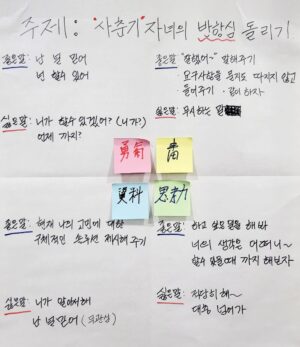 주제: '사춘기' 자녀의 반항심 돌리기
좋은말: 난 널 믿어
넌 할수 있어
좋은말: "잘했어~" 말해주기
· 요구사항을 묻지도 따지지 않고
· 들어주기 · 같이 하자
싫은말: 니가 할수 있겠어? (니가?)
언제 까지?
싫은말: 무시하는 말
勇氣
書
資料
思考力
좋은말: 현재 나의 고민에 대한
구체적인 솔루션 제시해 주기
좋은말: 하고 싶은 일을 해 봐
너의 생각은 어떠니~
할수 있을때 까지 해보자
싫은말: 니가 알아서해
난 널 믿어 (의관성)
싫은말: 적당히 해~
대충 넘어가